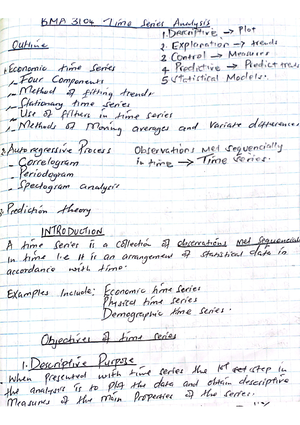 KMA 3104 Time Series Analysis
Outline
1. Descriptive → Plot
2. Explanation → trends
3 Control → Measures
4 Predictive → Predict trends
5 Statistical Models.
1. Economic time series
- Four Components
- Method of fitting trends
- Stationary time series
- Use of filters in time series
- Methods of Moving averages and Variate differences
2. Autoregressive Process
- Correlogram
- Periodogram
- Spectogram analysis
Observations Met Sequencially
in time → Time Series.
3. Prediction theory
INTRODUCTION
A time series is a collection of observations met sequencial
in time i.e It is an arrangement of statistical data in
accordance with time.
Examples Include; Economic time series
Physical time series
Demographic time series.
Objectives of time series
1. Descriptive Purpose
- When Presented with time series the 1st step in
the analysis is to plot the data and obtain descriptive
Measures of the Main Properties of the series.